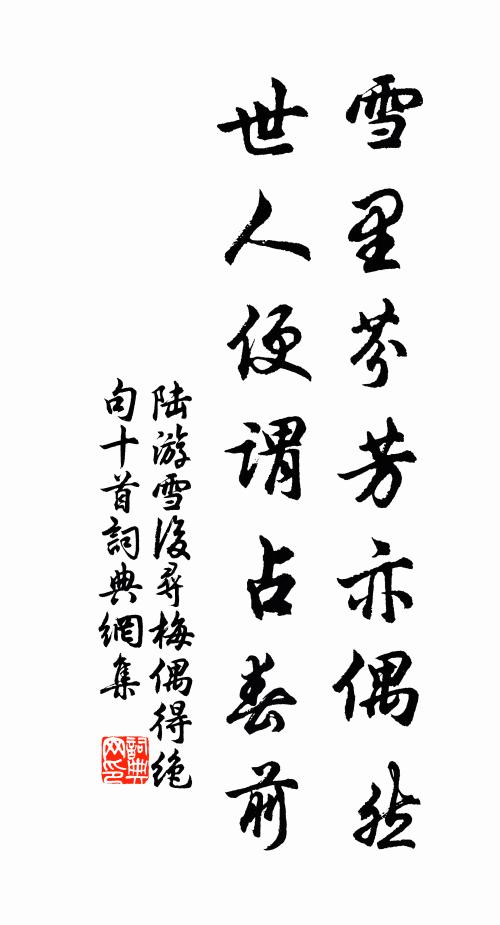 雪里芬芳亦偶然
世人便谓占春前
陆游雪後尋梅偶得绝
句十首詞典網集
詞典
网印